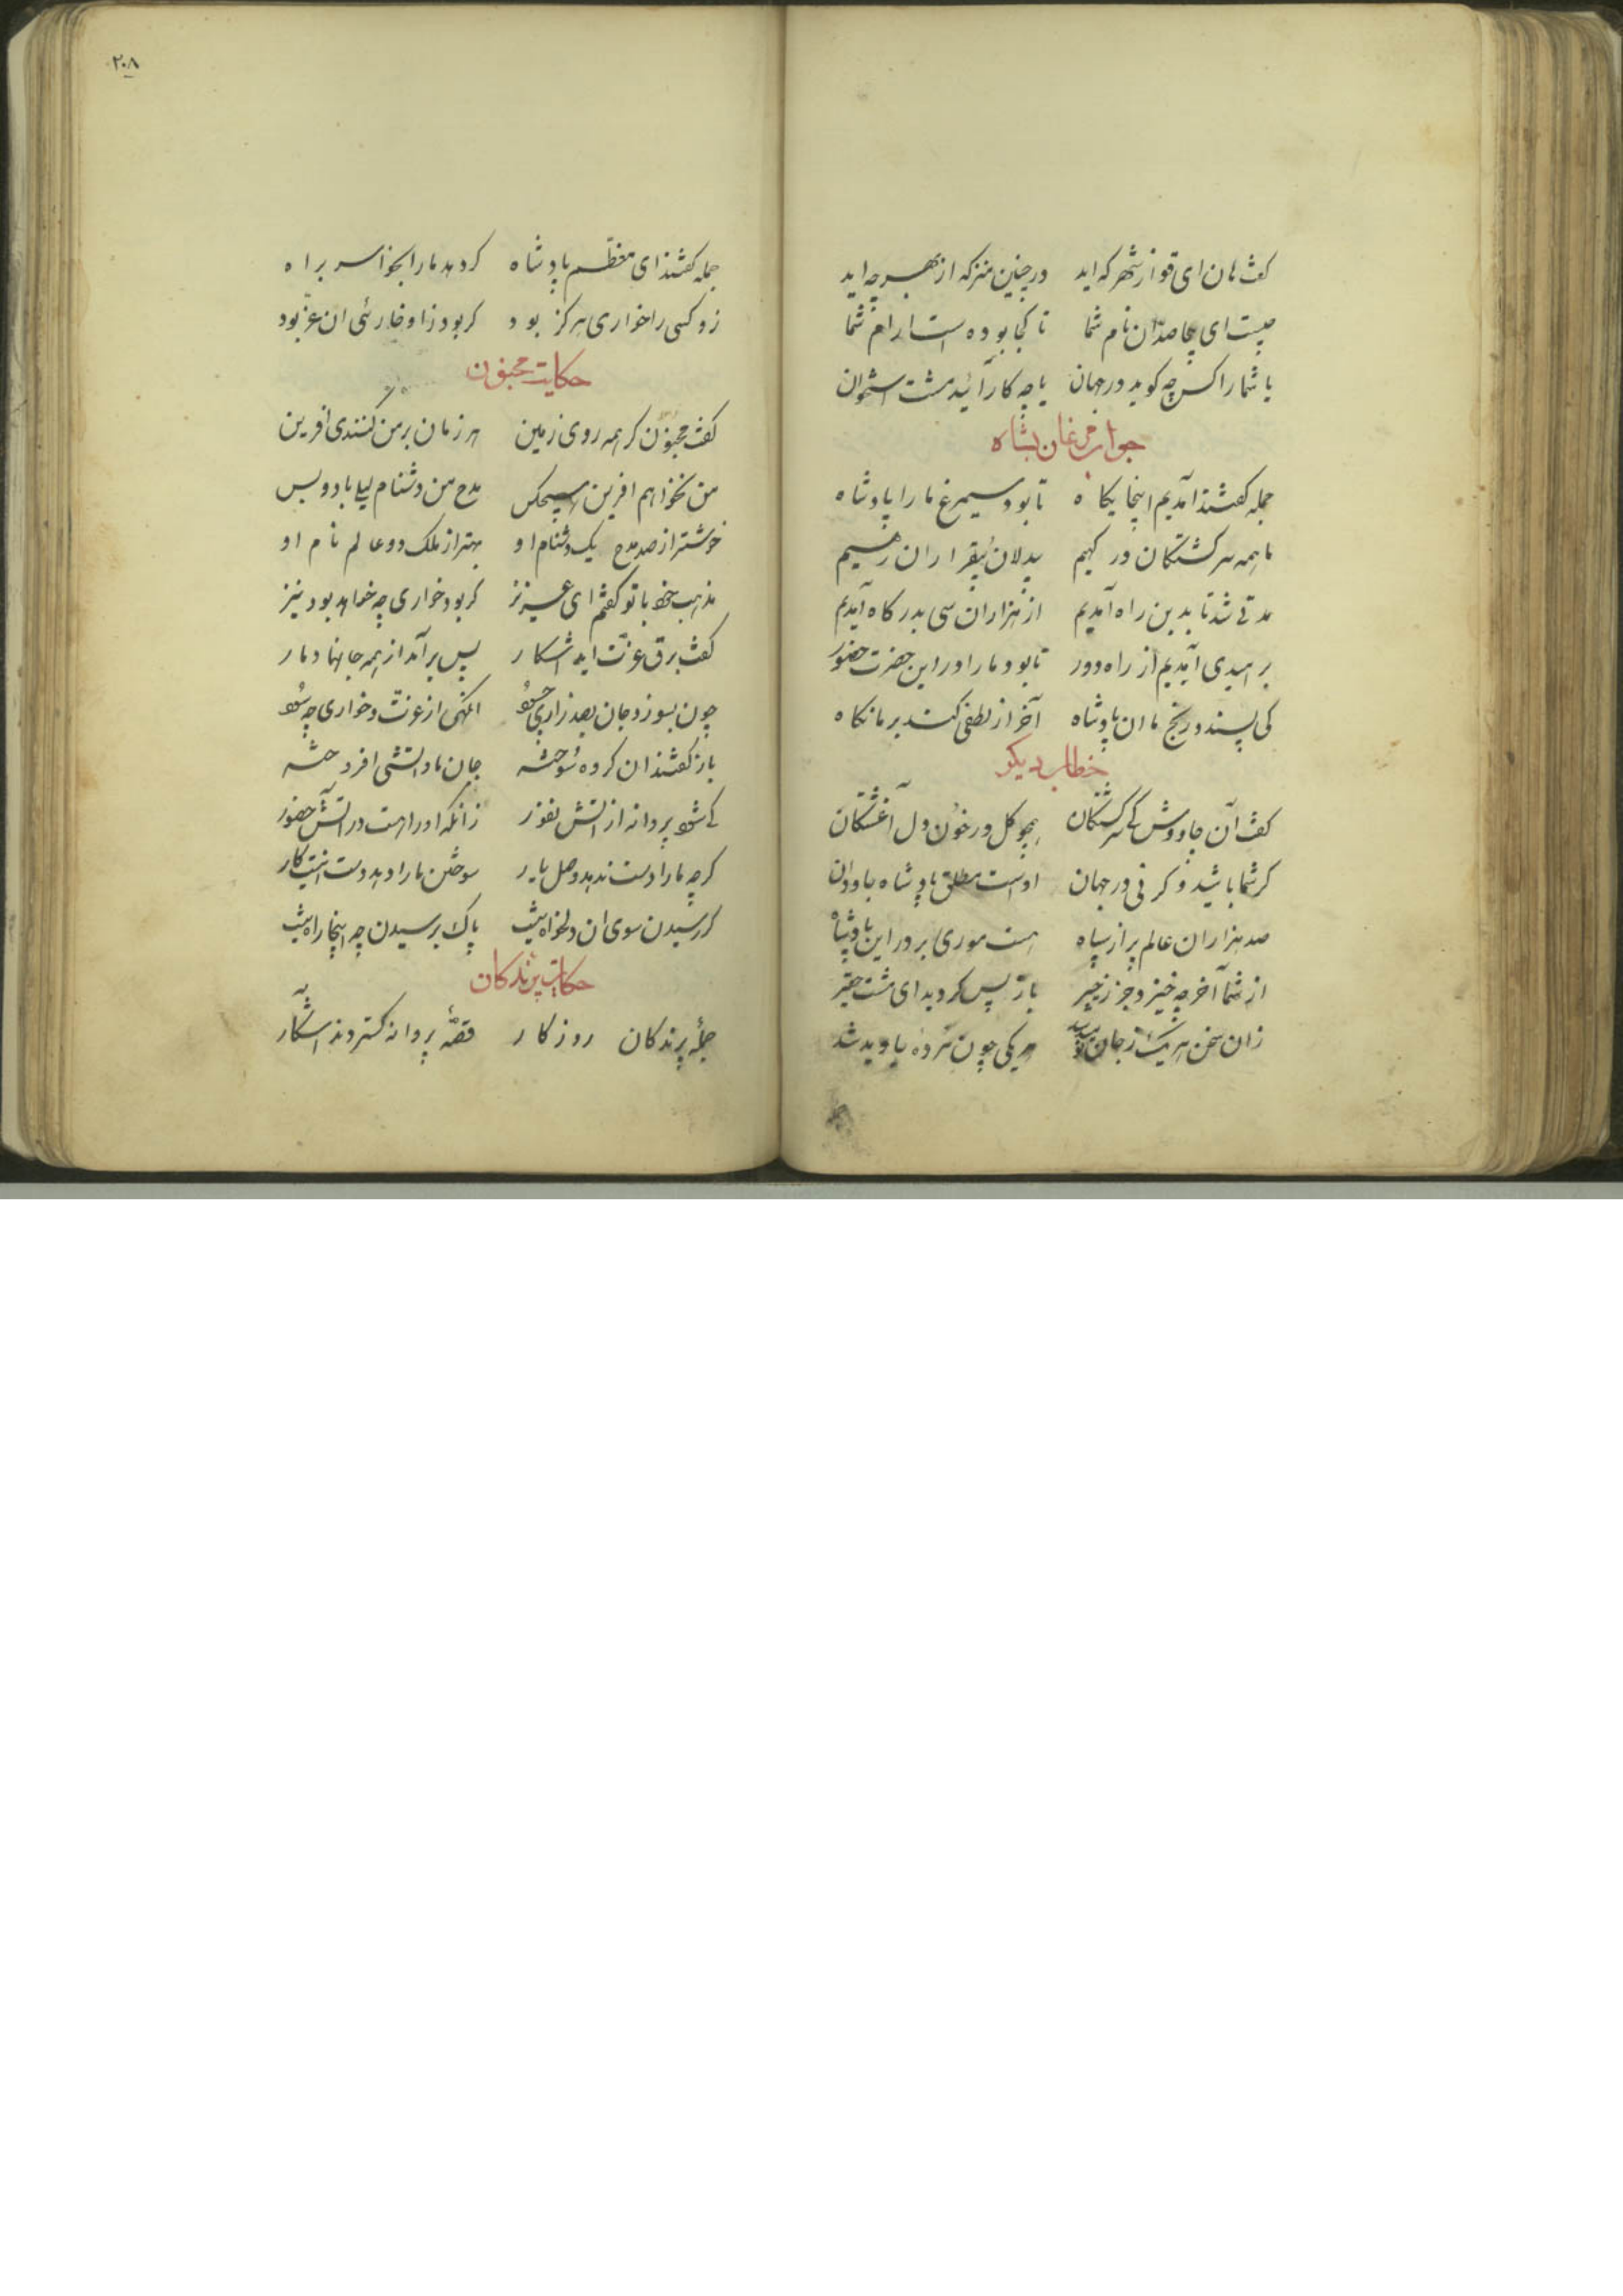 کفت هان ای قوم از شهر که اید در چنین منزکه از بهر چه اید
چیست ای بیحاصلان نام شما تا کجا بوده است ارام شما
یا شما را کس چه کوید در جهان یا چه کار آید مشت استخوان
جواب مرغان بشاه
جمله کفتند امدیم اینجا یکاه تا بود سیمرغ ما را پادشاه
ما همه سرکشتکان درکهیم بیدلان بیقراران رهیم
مدتی شد تا بدین راه آمدیم از هزاران سی بدرکاه آمدیم
بر امیدی آمدیم از راه دور تا بود ما را در این حضرت حضور
کی پسندد رنج ما ان پادشاه آخر از لطفی کند بر ما نکاه
خطاب دیکر
کفت آن چاووش کی سرکشتکان همچو کل در خون دل آغشتکان
کر شما باشید و کر نی در جهان اوست مطلق پادشاه جاودان
صد هزاران عالم پر از سپاه هست موری بر در این پادشاه
از شما آخر چه خیزد جز زحیر باز پس کردید ای مشت حقیر
زان سخن هر یک ز جان نومید شد هر یکی چون مرده جاوید شد
۲۰۸
جمله کفتند ای معظم پادشاه کر دهد ما را بخواری سر براه
زو کسی را خواری هرکز بود کر بود زو خواریی ان عز بود
حکایت مجنون
کفت مجنون کر همه روی زمین هر زمان بر من کنندی افرین
من نخواهم افرین هیچکس مدح من دشنام لیلی باد و بس
خوشتر از صد مدح یک دشنام او بهتر از ملک دو عالم نام او
مذهب خود با تو کفتم ای عزیز کر بود خواری چه خواهد بود نیز
کفت برق عزت اید اشکار پس برآمد از همه جانها دمار
چون بسوزد جان بصد زاری چه سود انکهی از عزت و خواری چه سود
باز کفتند ان کروه سوخته جان ما و اتشی افروخته
کی شود پروانه از اتش نفور زانکه او را هست در آتش حضور
کرچه ما را دست ندهد وصل یار سوختن ما را دهد دست اینت کار
کر رسیدن سوی ان دلخواه نیست پاک پرسیدن چه اینجا راه نیست
حکایت پرندکان
جمله پرندکان روزکار قصه پروانه کستردند اشکار